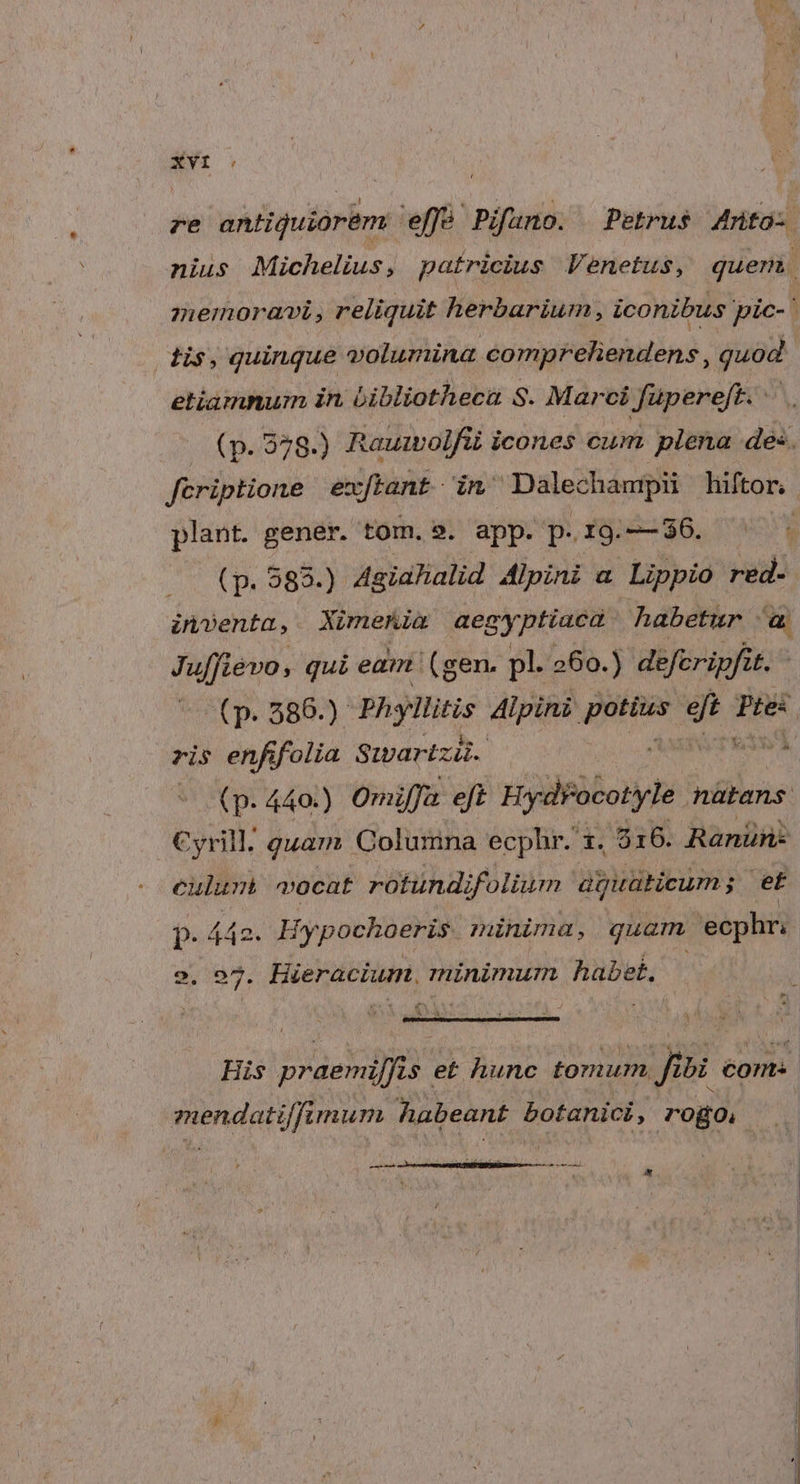 XVI
re antiquiorem eſſe Piſano. Petrus Anto-
nius Michelius, patricius Venetus, quem
memoravi, reliquit herbarium, iconibus pic-
tis, quinque volumina comprehendens, quod
etiamnum in bibliotheca S. Marci ſupereſt.
(p. 378.) Rauwolfii icones cum plena de-
ſcriptione exſtant in Dalechampii hiſtor.
plant. gener. tom. 2. app. p. 19.—36.
(p. 385.) Agiahalid Alpini a Lippio red-
inventa, Ximenia aegyptiaca habetur a
Juſſievo, qui eam (gen. pl. 260.) deſcripſit.
(p. 386.) Phyllitis Alpini potius eſt Pte-
ris enſifolia Swartzii.
(p. 440.) Omiſſa eſt Hydrocotyle natans
Cyrill. quam Columna ecphr. 1. 316. Ranun-
culum vocat rotundifolium aquaticum; et
p. 442. Hypochoeris minima, quam ecphr.
2. 27. Hieracium minimum habet.
His praemiſſis et hunc tomum ſibi com-
mendatiſſimum habeant botanici, rogo.